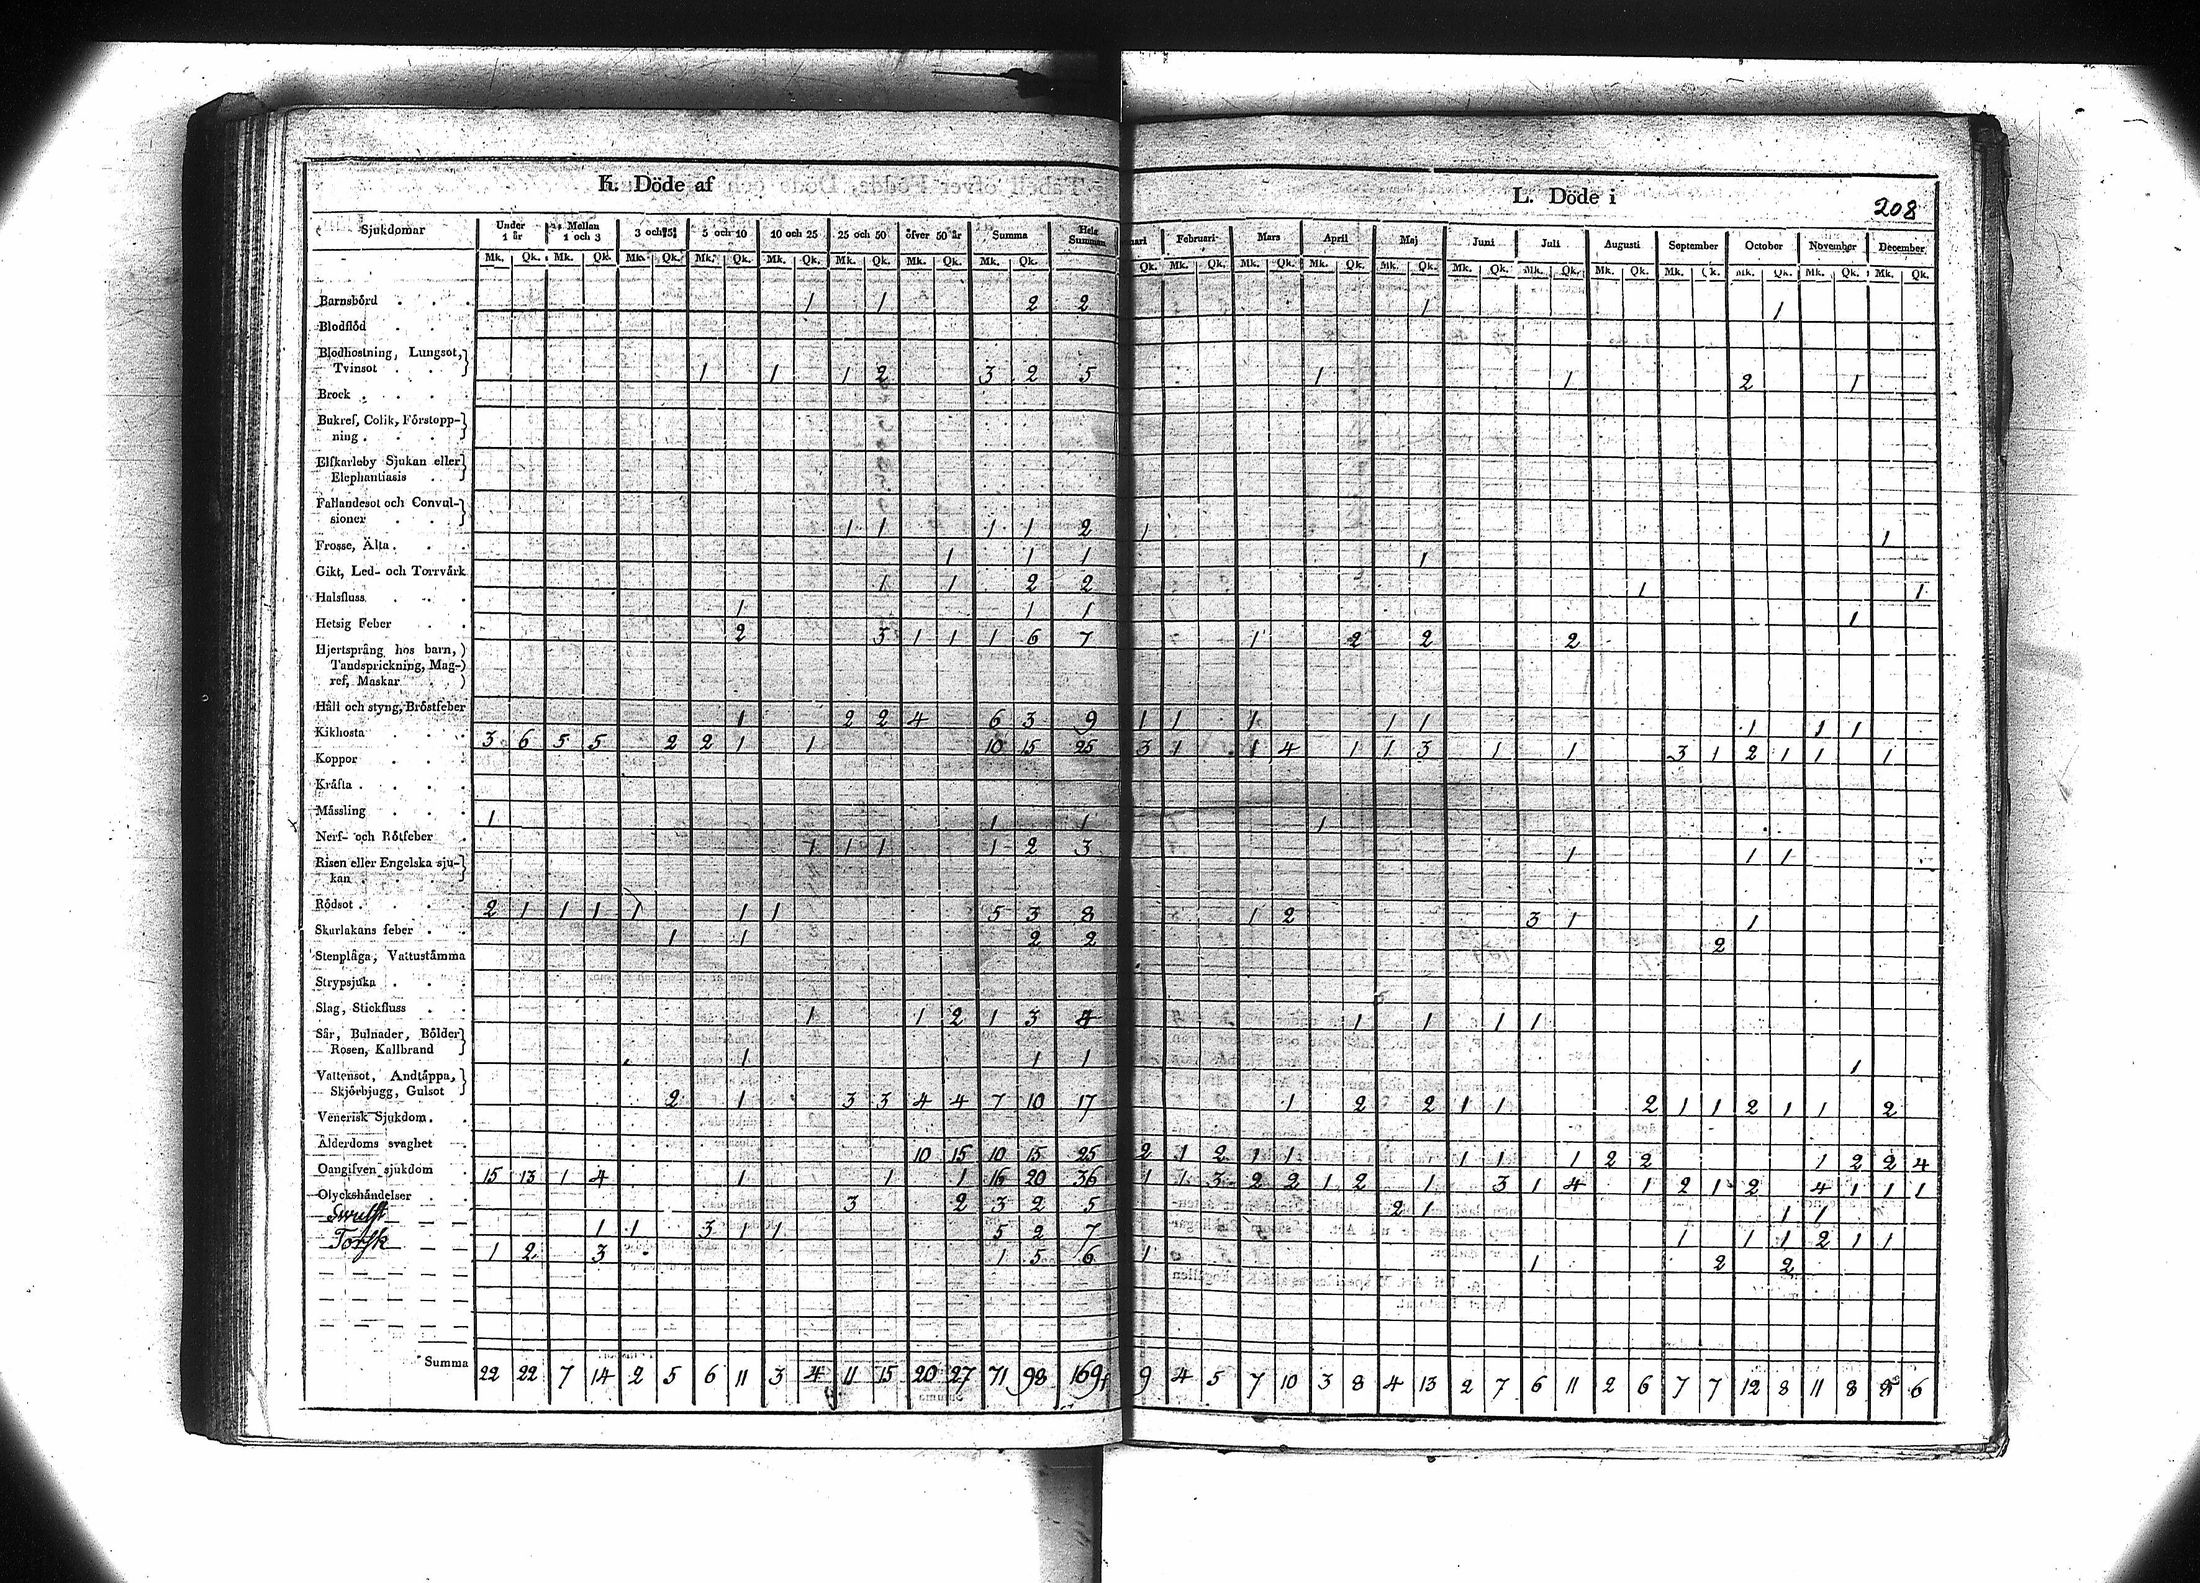 K. Döde af
L. Döde i
208
Sjukdomar Under 1 år Mellan 1 och 3 3 och 5 5 och 10 10 och 25 25 och 50 öfver 50 år Summa Hela Summan
Mk. Qk. Mk. Qk. Mk. Qk. Mk. Qk. Mk. Qk. Mk. Qk. Mk. Qk. Mk. Qk.
uari Februari Mars April Maj Juni Juli Augusti September October November December
Qk. Mk. Qk. Mk. Qk. Mk. Qk. Mk. Qk. Mk. Qk. Mk. Qk. Mk. Qk. Mk. Qk. Mk. Qk. Mk. Qk. Mk. Qk.
Barnsbörd 1 1 2 2 1 1
Blodflöd
Blodhostning, Lungsot,
Tvinsot 1 1 1 2 3 2 5 1 1 2 1
Brock
Bukref, Colik, Förstopp-
ning
Elfkarleby Sjukan eller
Elephantiasis
Fallandesot och Convul-
sioner 1 1 1 1 2 1 1
Frosse, Älta 1 1 1 1
Gikt, Led- och Torrvärk 1 1 2 2 1 1
Halsfluss 1 1 1 1
Hetsig Feber 2 3 1 1 1 6 7 1 2 2 2
Hjertsprång hos barn,
Tandsprickning, Mag-
ref, Maskar
Håll och styng, Bröstfeber 1 2 2 4 6 3 9 1 1 1 1 1 1 1 1
Kikhosta 3 6 5 5 2 2 1 1 10 15 25 3 1 1 4 1 1 3 1 1 3 1 2 1 1 1
Koppor
Kräfta
Mässling 1 1 1 1
Nerf- och Rötfeber 1 1 1 1 2 3 1 1 1
Risen eller Engelska sju-
kan
Rödsot 2 1 1 1 1 1 1 5 3 8 1 2 3 1 1
Skarlakans feber 1 1 2 2 2
Stenplåga, Vattustämma
Strypsjuka
Slag, Stickfluss 1 1 2 1 3 4 1 1 1 1
Sår, Bulnader, Bölder
Rosen, Kallbrand 1 1 1 1
Vattensot, Andtäppa,
Skjörbjugg, Gulsot 2 1 3 3 4 4 7 10 17 1 2 2 1 1 2 1 1 2 1 1 2
Venerisk Sjukdom
Ålderdoms svaghet 10 15 10 15 25 2 1 2 1 1 1 1 1 2 2 1 2 2 4
Oangifven sjukdom 15 13 1 4 1 1 1 16 20 36 1 1 3 2 2 1 2 1 3 1 4 1 2 1 2 4 1 1 1
Olyckshändelser 3 2 3 2 5 2 1 1 1
Swulst 1 1 3 1 1 5 2 7 1 1 1 2 1 1
Torsk 1 2 3 1 5 6 1 1 2 2
Summa 22 22 7 14 2 5 6 11 3 4 11 15 20 27 71 98 169 9 4 5 7 10 3 8 4 13 2 7 6 11 2 6 7 7 12 8 11 8 6